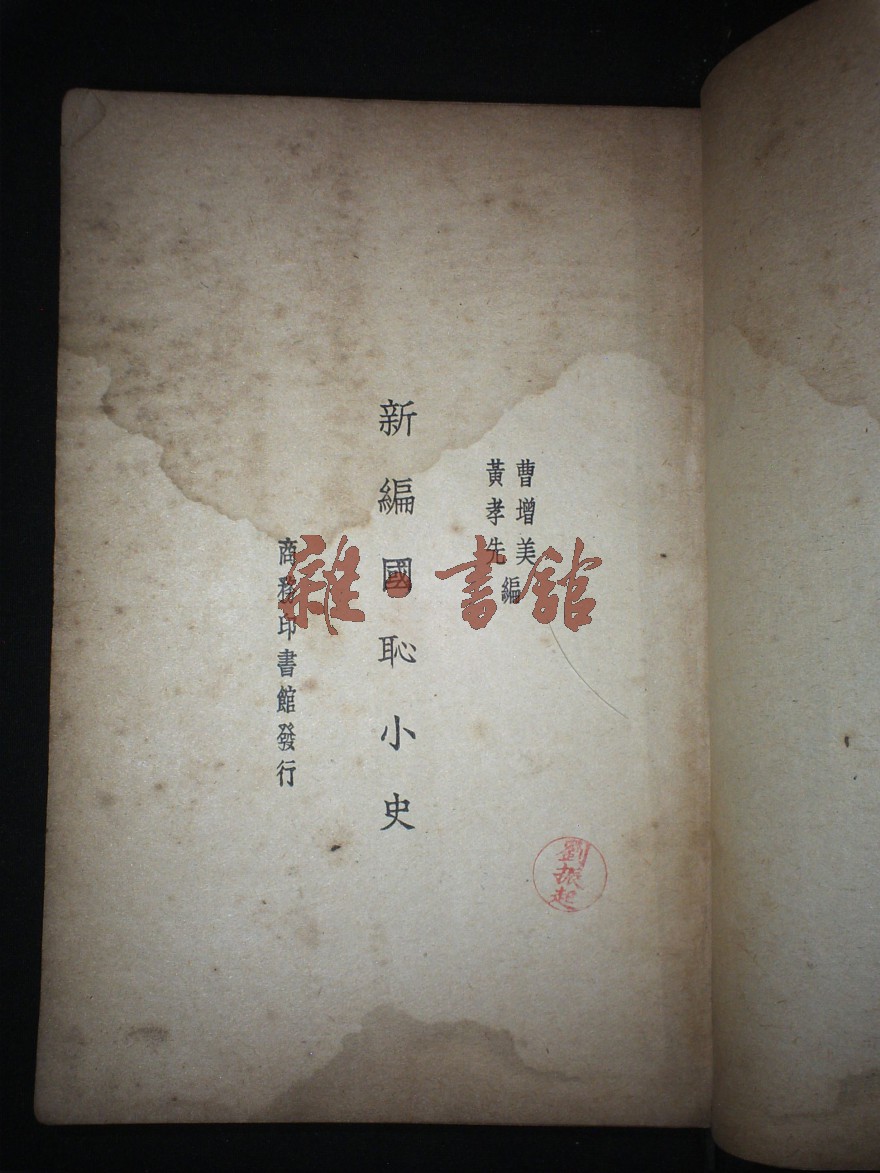 曹增美
黃孝先
編
新編國恥小史
商務印書館發行
劉振起
雜書館